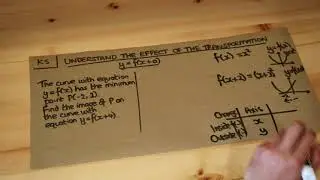 KS | UNDERSTAND THE EFFECT OF THE TRANSFORMATION
y=f(x+a)
The curve with equation
y=f(x) has the minimum
point P(-2,1).
Find the image of P on
the curve with
equation y=f(x+4)
f(x)=x²
f(x+2)=(x+2)²
Axis
Inside( )
x
Outside( )
y